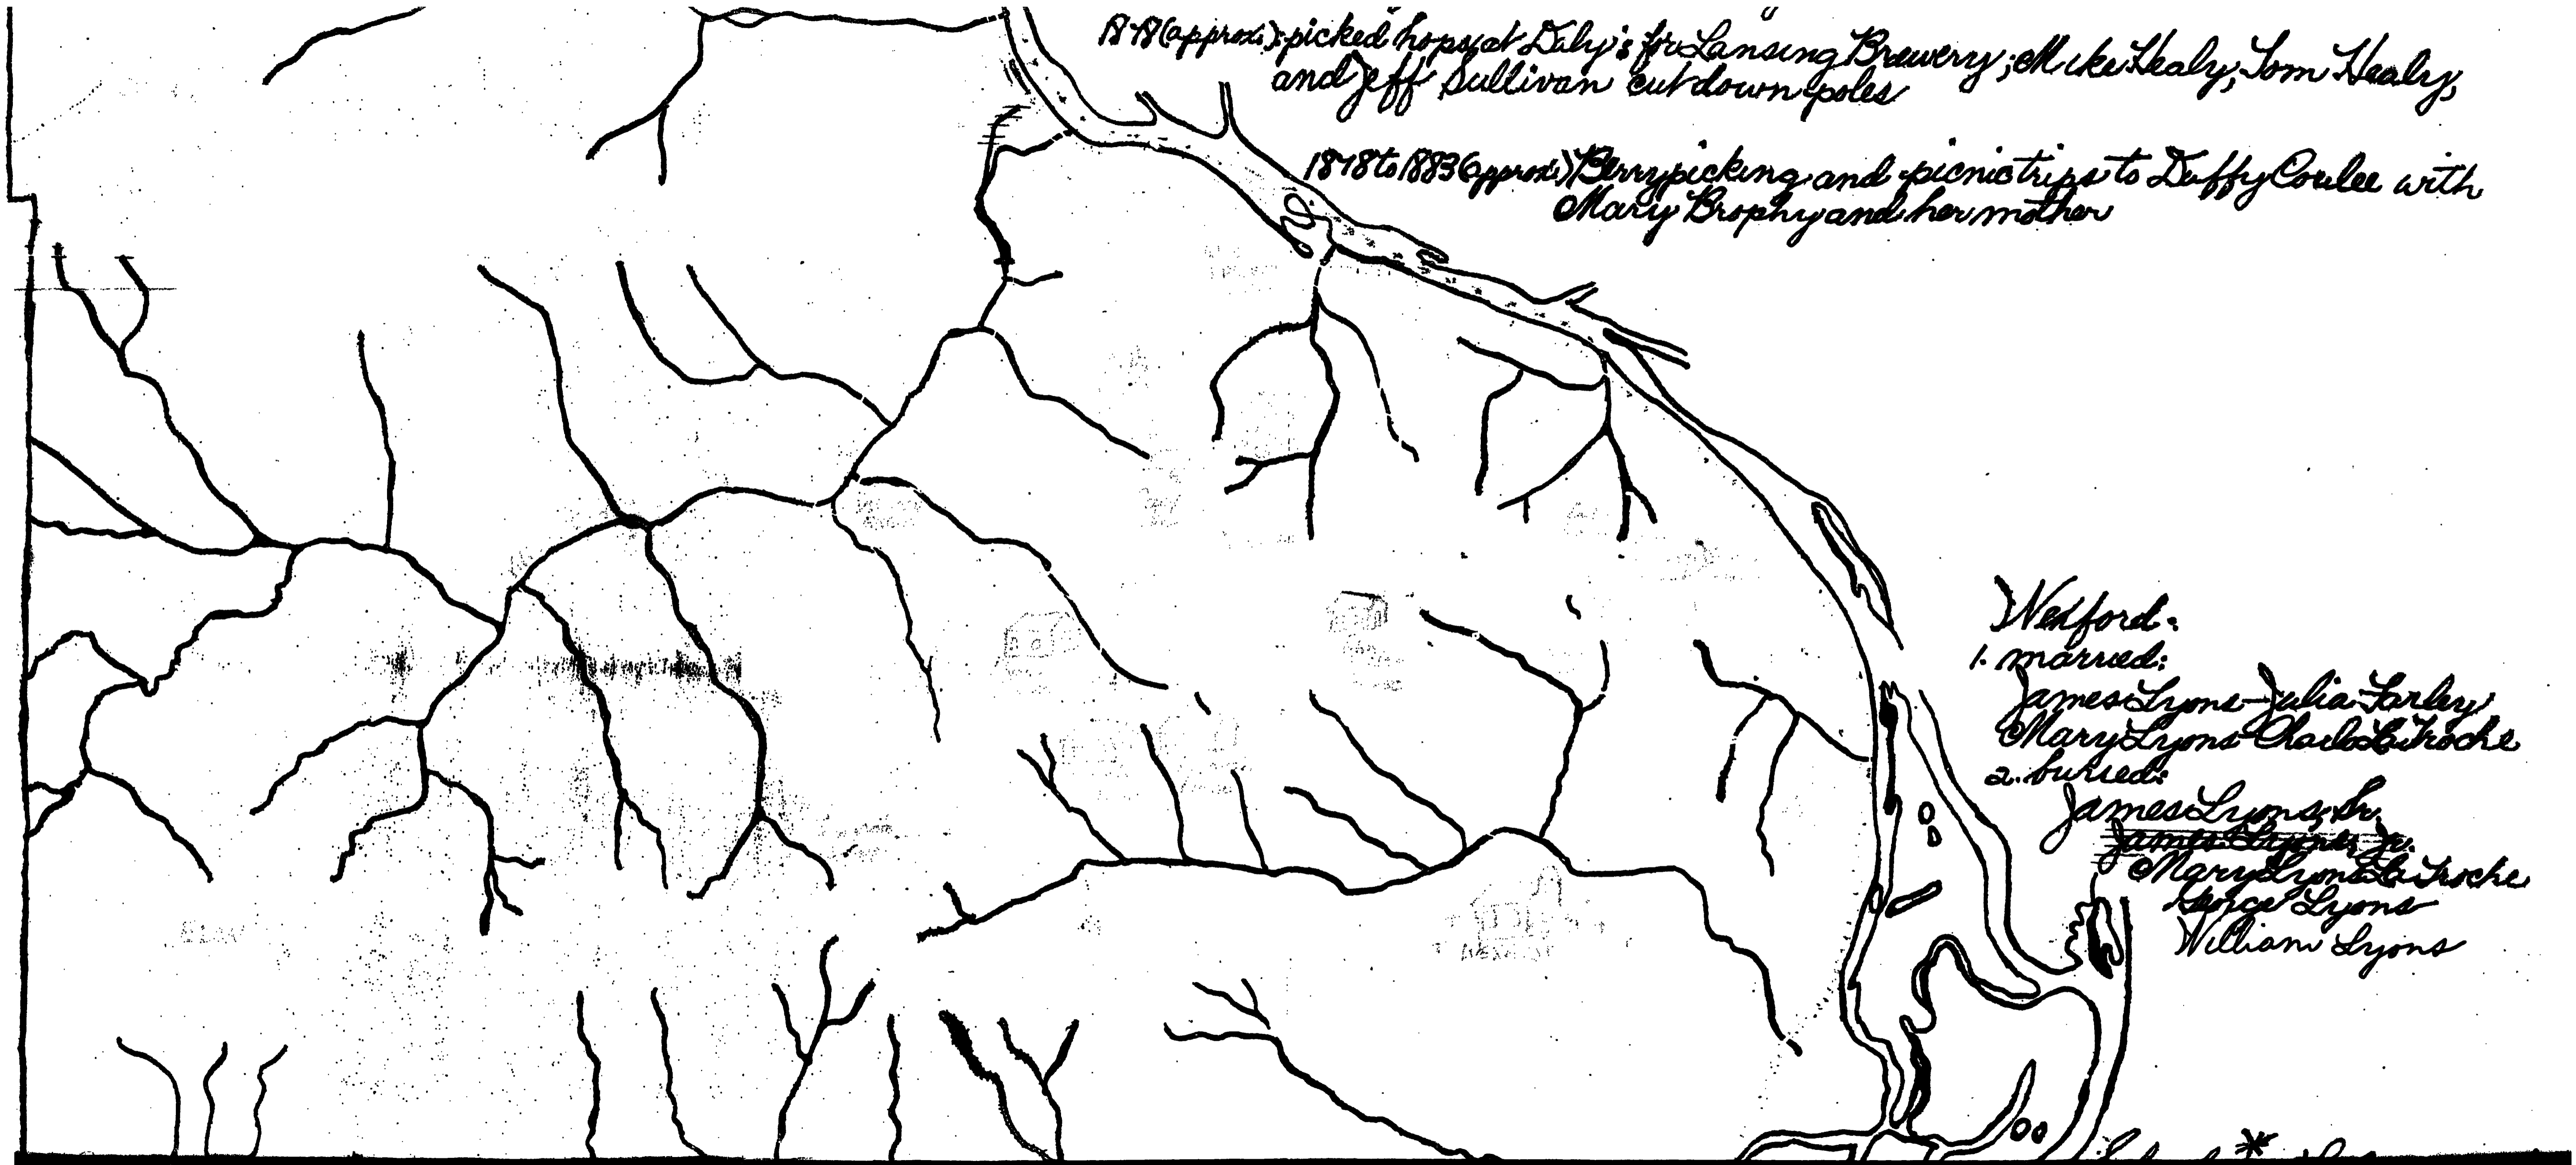 1878 (approx.): picked hops at Daly's for Lansing Brewery; Mike Healy, Tom Healy,
and Jeff Sullivan cut down poles
1878 to 1883 (approx.) Berrypicking and picnic trips to Duffy Coulee with
Mary Brophy and her mother
Wexford:
1. married:
James Lyons - Julia Farley
Mary Lyons - Charles LaTroche
2. buried:
James Lyons, Sr.
James Lyons, Jr.
Mary Lyons LaTroche
George Lyons
William Lyons